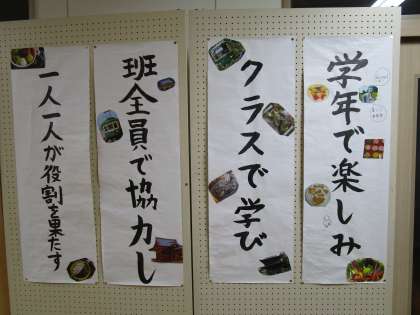 学年で楽しみ
クラスで学び
班全員で協力し
一人一人が役割を果たす